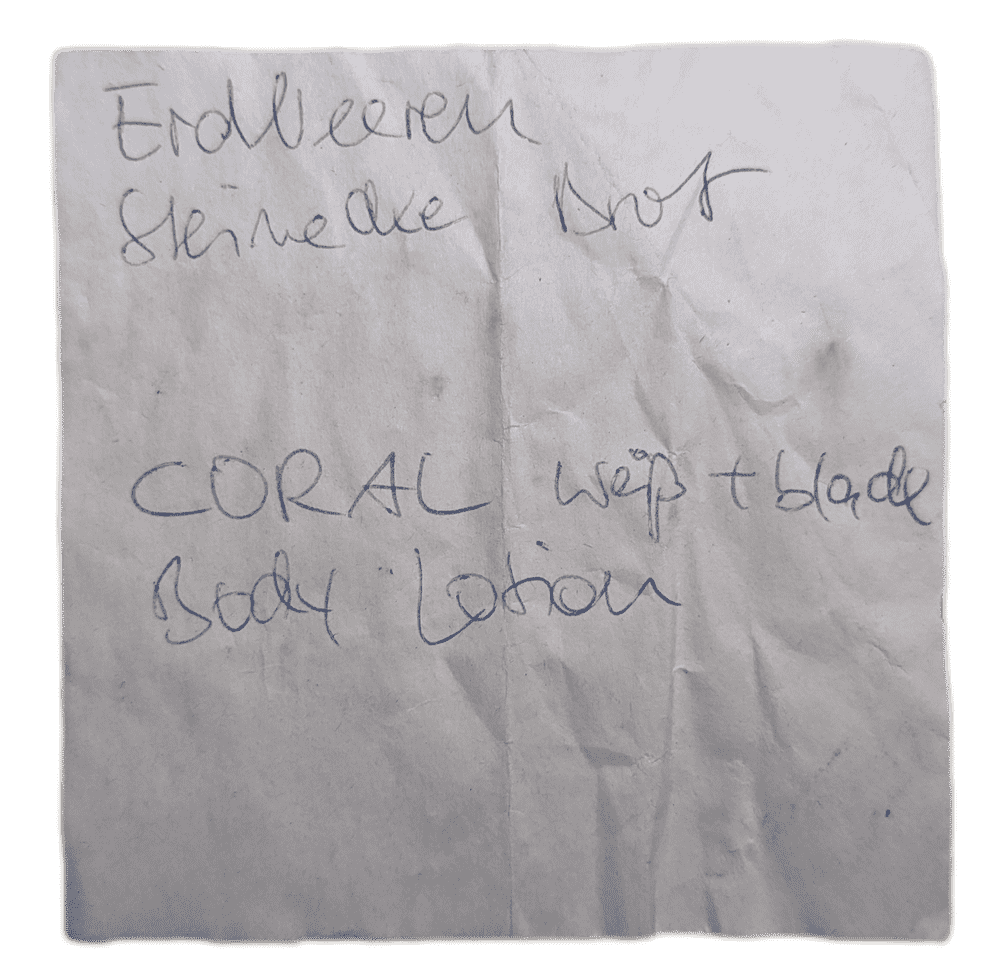 Erdbeeren
Steinecke Brot
CORAL weiß + black
Body Lotion